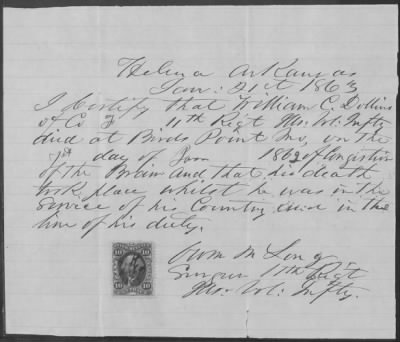 Helena Arkansas
Jan: 21st 1863
I Certify that William C. Dollins
of Co F 11th Regt Ills. Vol. Infty
died at Birds Point Mo, on the
day of Jan 1862 of Congestion
of the Brain and that his death
took place whilst he was in the
Service of his Country and in the
line of his duty.
Owen M Long
Surgeon 11th Regt
Ills. Vol. Infty.
10 10